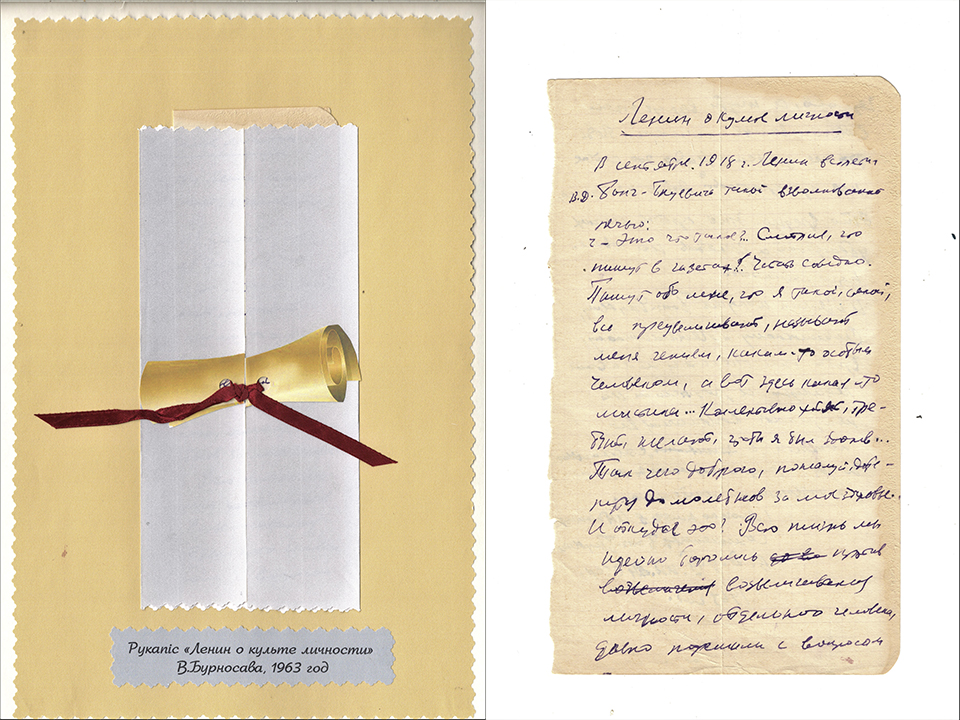 Рукапіс «Ленин о культе личности»
В.Бурносава, 1963 год
Ленин о культе личности
В сентябре 1918 г. Ленин встретил
В.Д. Бонч-Бруевича такой взволнованной
речью:
- Это что такое?.. Смотрите, что
пишут в газетах!.. Читать стыдно.
Пишут обо мне, что я такой, сякой,
все преувеличивают, называют
меня гением, каким-то особым
человеком, а вот здесь какая-то
мистика... Коллективно хотят, тре-
буют, желают, чтобы я был здоров...
Так чего доброго, пожалуй, добе-
рутся до молебнов за мое здоровье.
И откуда это? Всю жизнь мы
идейно боролись против
возвеличивания
личности, отдельного человека,
давно порешили с вопросом